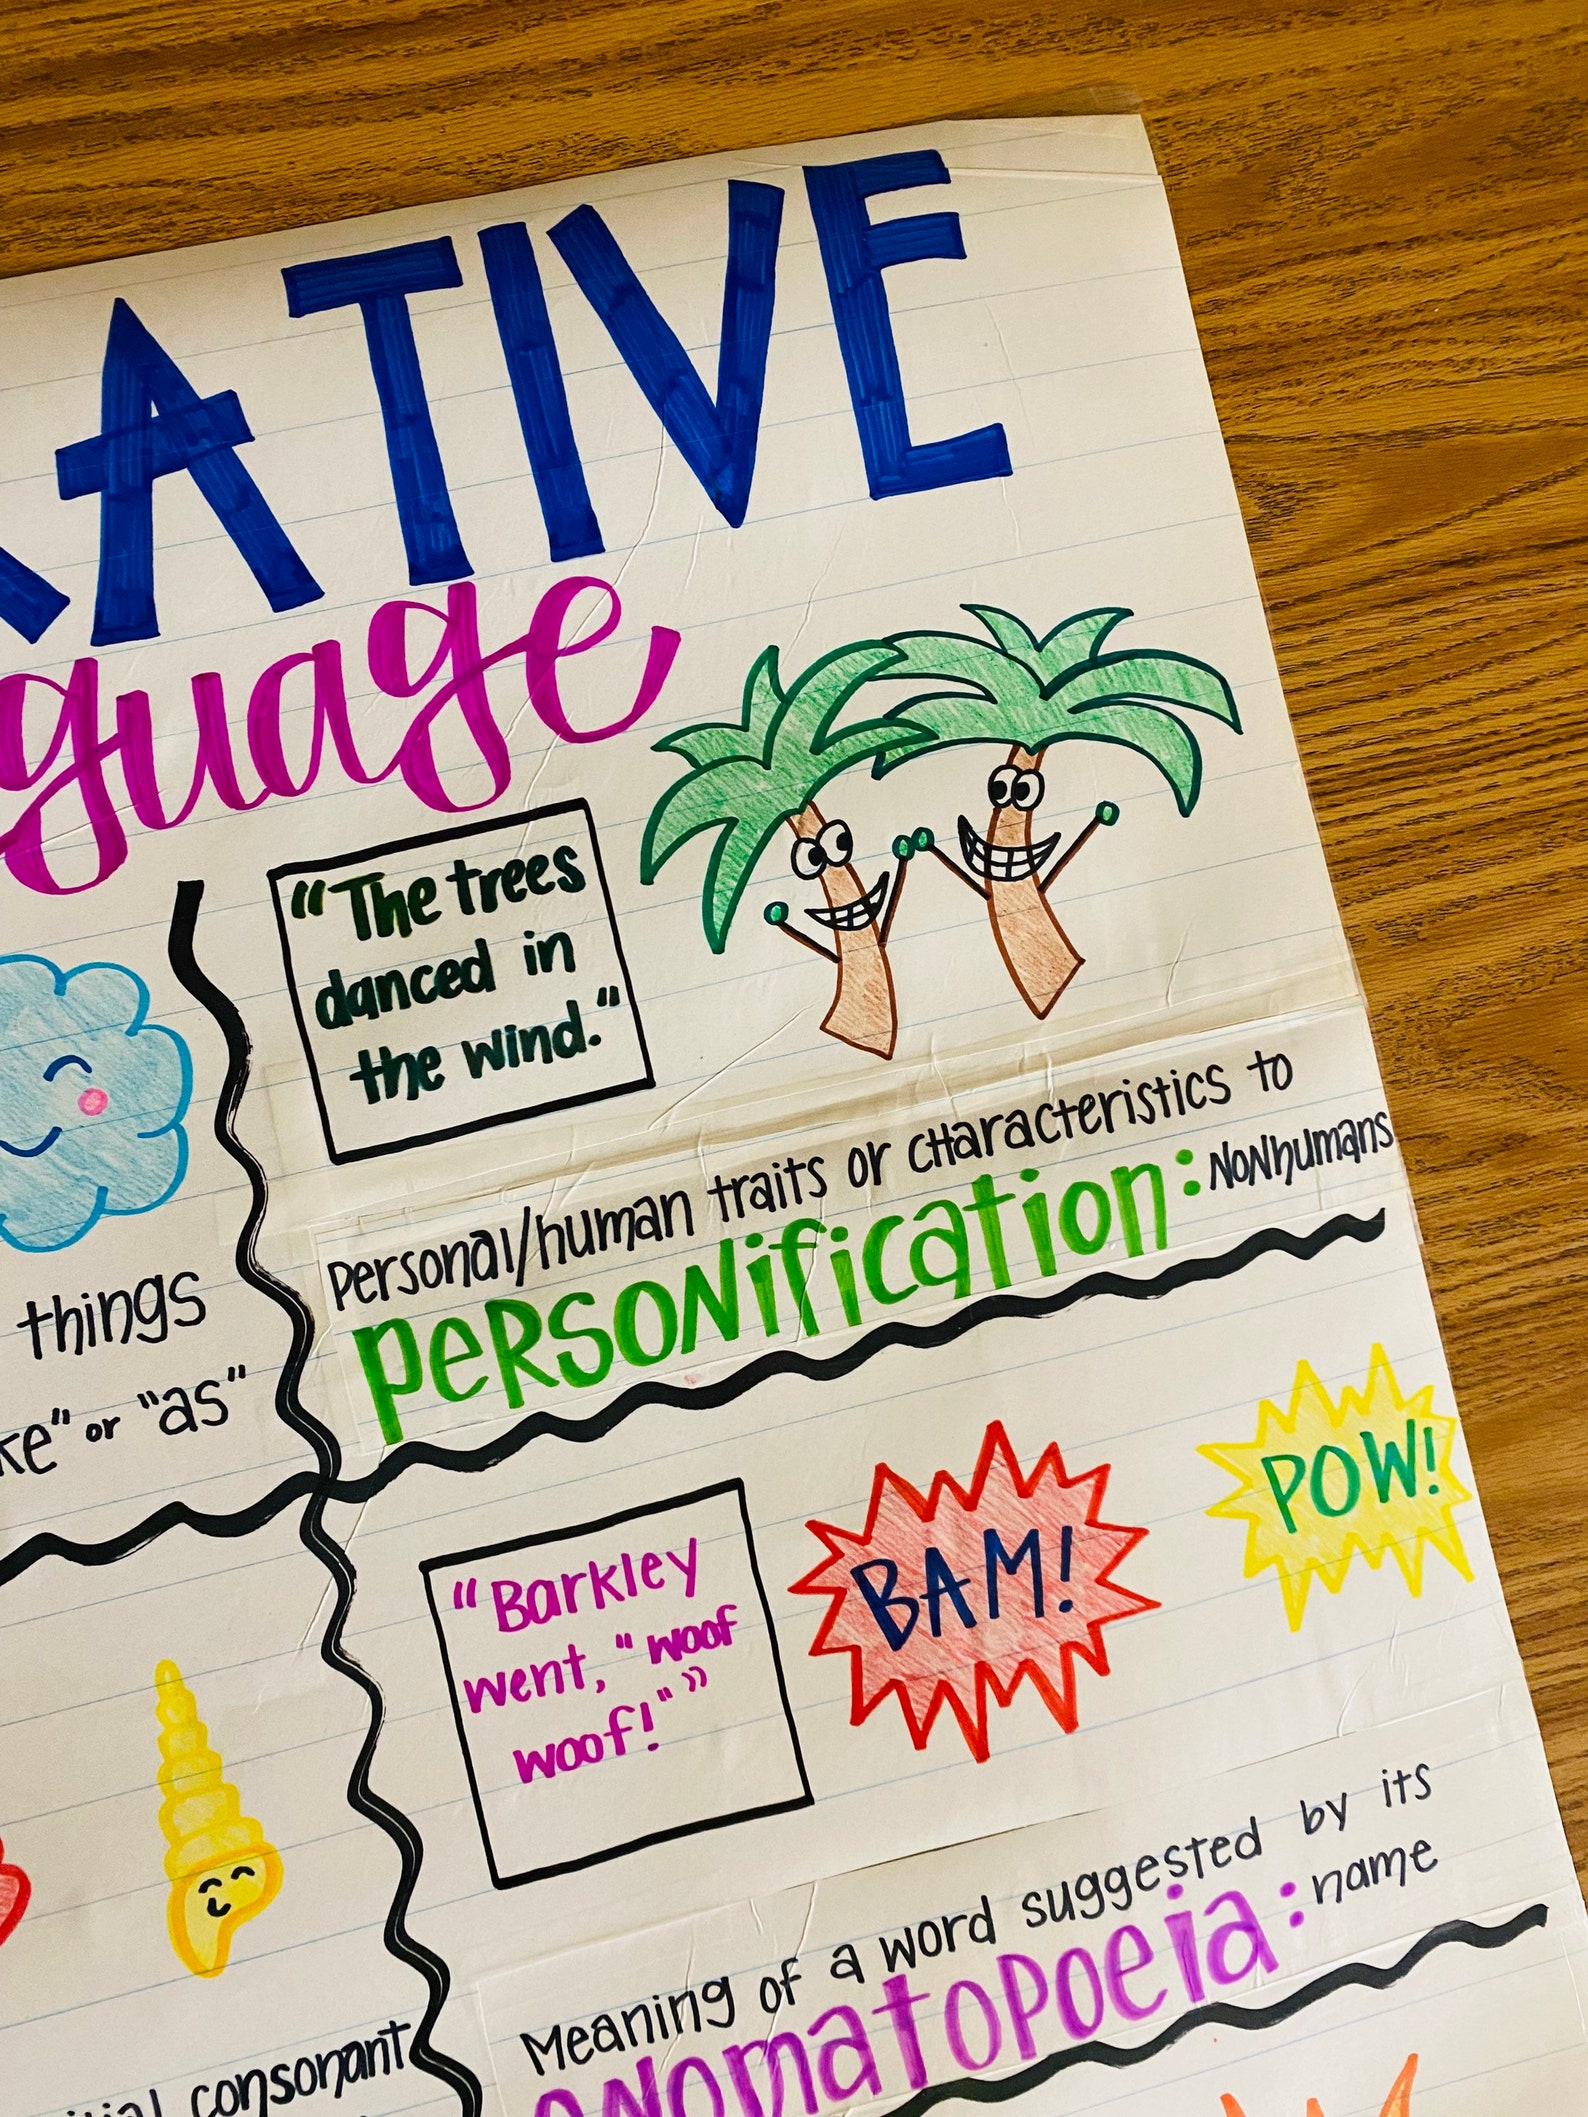 ATIVE
guage
"The trees
danced in
the wind."
personal/human traits or characteristics to
personification: nonhumans
things
"as"
or
"Barkley
went, "woof
woof!""
BAM!
POW!
Meaning of a word suggested by its
onomatopoeia: name
consonant